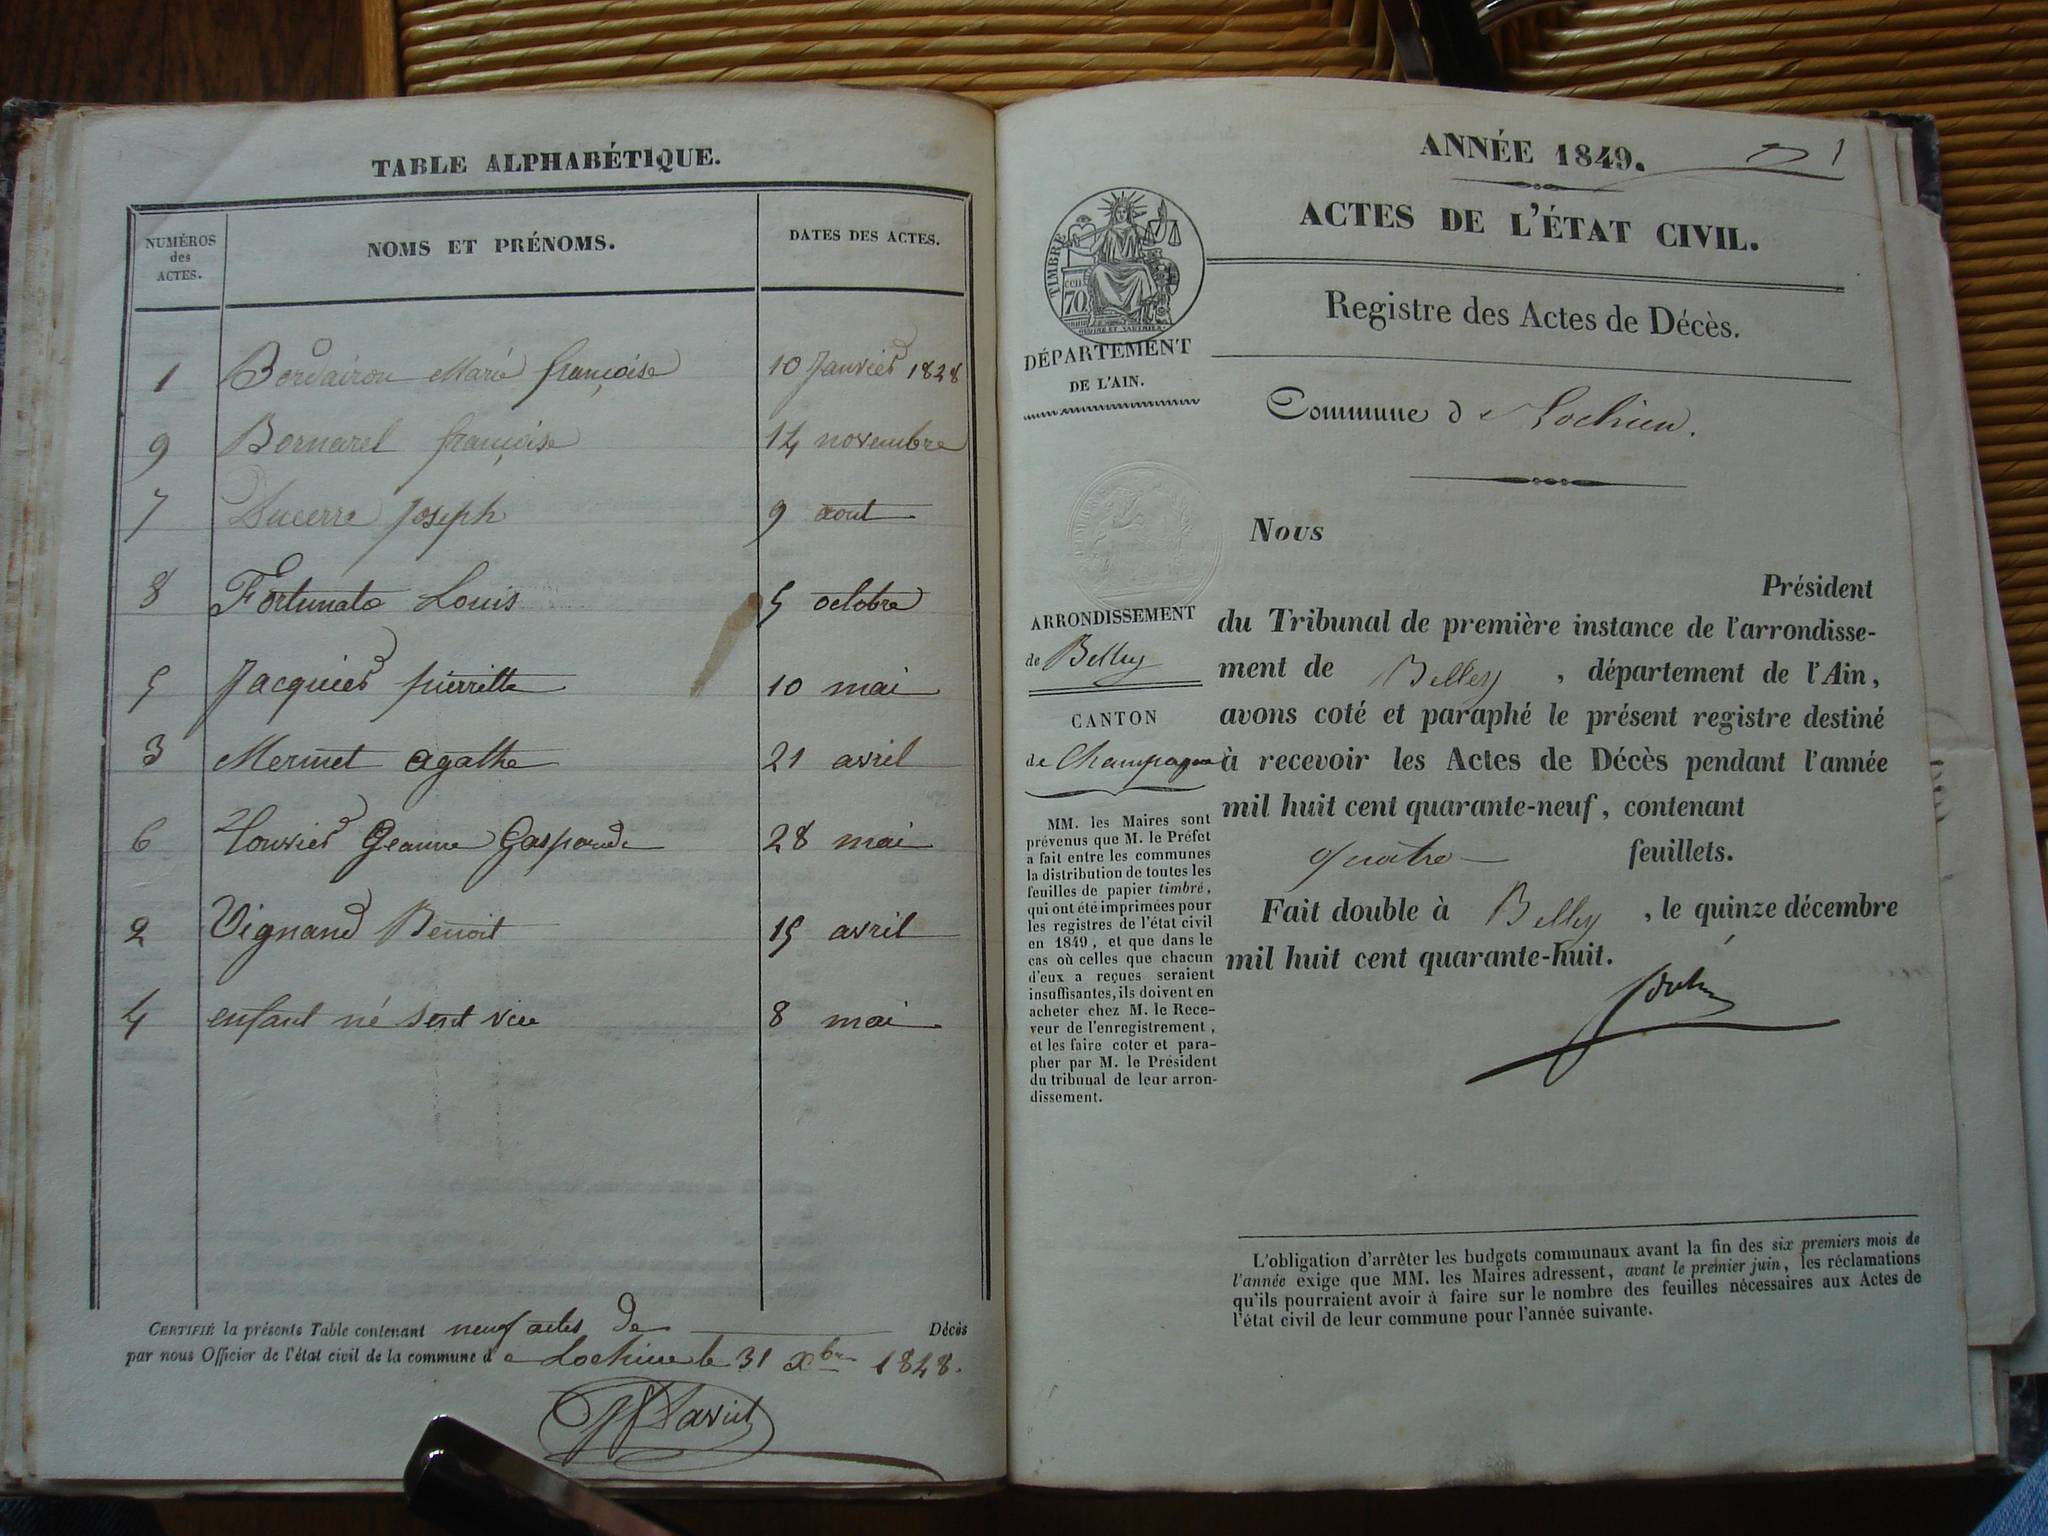 TABLE ALPHABÉTIQUE.
NUMÉROS des ACTES. NOMS ET PRÉNOMS. DATES DES ACTES.
1 Bordairon Marie françoise 10 Janvier 1848
9 Bornarel françoise 14 novembre
7 Ducerre Joseph 9 aout
8 Fortunato Louis 5 octobre
5 Jacquier pierrette 10 mai
3 Mermet agathe 21 avril
6 Geanne Gasparde 28 mai
2 Vignand Benoit 15 avril
4 enfant né sent vie 8 mai
CERTIFIÉ la présente Table contenant neuf actes de Décès
par nous Officier de l'état civil de la commune de Lochieu le 31 Xbre 1848.
ANNÉE 1849.
1
ACTES DE L'ÉTAT CIVIL.
TIMBRE
CEN
70
Registre des Actes de Décès.
DÉPARTEMENT
DE L'AIN.
Commune de Lochieu.
Nous
Président
du Tribunal de première instance de l'arrondisse-
ment de Belley, département de l'Ain,
avons coté et paraphé le présent registre destiné
à recevoir les Actes de Décès pendant l'année
mil huit cent quarante-neuf, contenant
quatre feuillets.
Fait double à Belley, le quinze décembre
mil huit cent quarante-huit.
ARRONDISSEMENT
de Belley
CANTON
de Champagne
MM. les Maires sont
prévenus que M. le Préfet
a fait entre les communes
la distribution de toutes les
feuilles de papier timbré,
qui ont été imprimées pour
les registres de l'état civil
en 1849, et que dans le
cas où celles que chacun
d'eux a reçues seraient
insuffisantes, ils doivent en
acheter chez M. le Rece-
veur de l'enregistrement,
et les faire coter et para-
pher par M. le Président
du tribunal de leur arron-
dissement.
L'obligation d'arrêter les budgets communaux avant la fin des six premiers mois de
l'année exige que MM. les Maires adressent, avant le premier juin, les réclamations
qu'ils pourraient avoir à faire sur le nombre des feuilles nécessaires aux Actes de
l'état civil de leur commune pour l'année suivante.